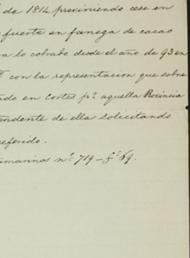 de 1814 previniendo cese en
fuerte en fanega de cacao
lo cobrado desde el año de 93 en
con la representacion que sobre
en Cortes pr. aquella Provincia
ndente de ella solicitando
referido.
nº 719 - fº 69.